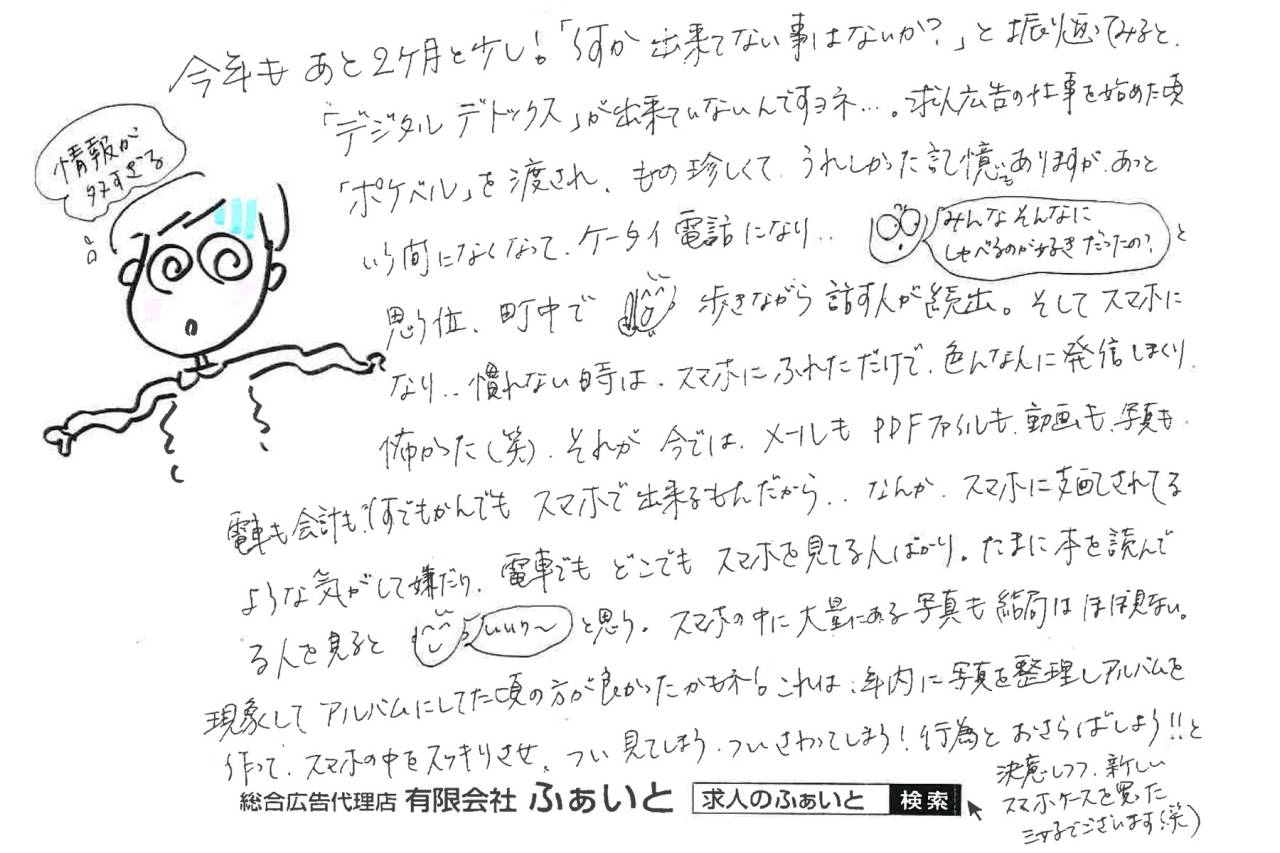 今年も あと2ヶ月と少し!「何か 出来てない事はないか?」と振り返ってみると、
「デジタル デトックス」が出来ていないんですヨネ…。求人広告の仕事を始めた頃
情報が
多すぎる
「ポケベル」を渡され、もの珍しくて うれしかった記憶がありますが、あっと
いう間になくなって、ケータイ電話になり..
みんな そんなに
しゃべるのが好きだったの?
と
思う位、町中で 歩きながら 話す人が続出。そして スマホに
なり.. 慣れない時は、スマホに ふれただけで、色んな人に発信しまくり
怖かった(笑)、それが 今では、メールも PDFファイルも、動画も、写真も
電車も会計も、何でもかんでも スマホで出来るもんだから.. なんか、スマホに支配されてる
ような気がして嫌だわ、電車でも どこでも スマホを見てる人ばかり。たまに本を読んで
る人を見ると
いいわ〜
と思う。スマホの中に大量にある写真も結局はほぼ見ない。
現象して アルバムにしてた頃の方が良かったかもネ!これは、年内に写真を整理しアルバムを
作って、スマホの中をスッキリさせ、つい見てしまう、ついさわってしまう!行為とおさらばしよう!!と
決意しつつ、新しい
スマホケースを買った
でございます(笑)
総合広告代理店 有限会社 ふぁいと 求人のふぁいと 検索